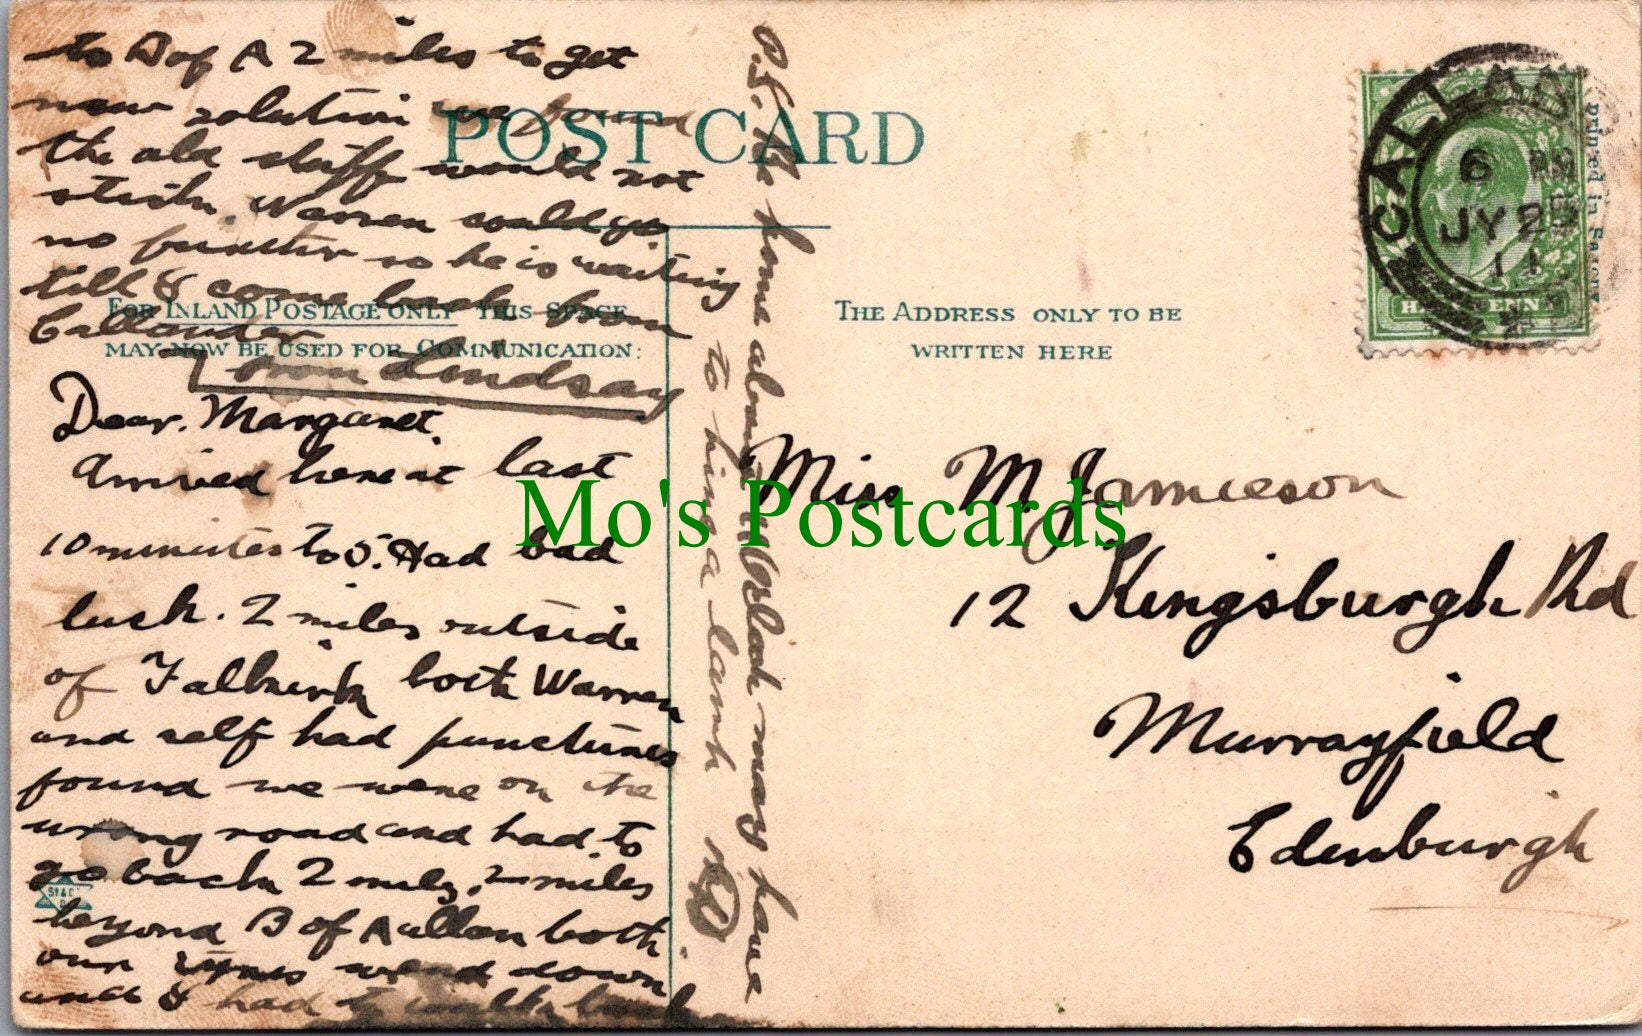 to B of A 2 miles to get
new solution we found
the old stuff would not
stick. Warren could get
no further so he is waiting
till I come back from
Callander
from Lindsay
POST CARD
FOR INLAND POSTAGE ONLY THIS SPACE
MAY NOW BE USED FOR COMMUNICATION:
Dear. Margaret.
Arrived here at last
10 minutes to 5. Had bad
luck. 2 miles outside
of Falkirk both Warren
and self had punctures
found we were on the
wrong road and had to
go back 2 miles, 2 miles
beyond B of Allan both
our tyres went down
and I had to walk back
P.S. Be home about 11 Oclock may have
to hire a lamp
THE ADDRESS ONLY TO BE
WRITTEN HERE
Miss M Jamieson
12 Kingsburgh Rd
Murrayfield
Edenburgh
CALLAND
6 PM
JY 25
11
HALFPENNY
Printed in Saxony
Mo's Postcards